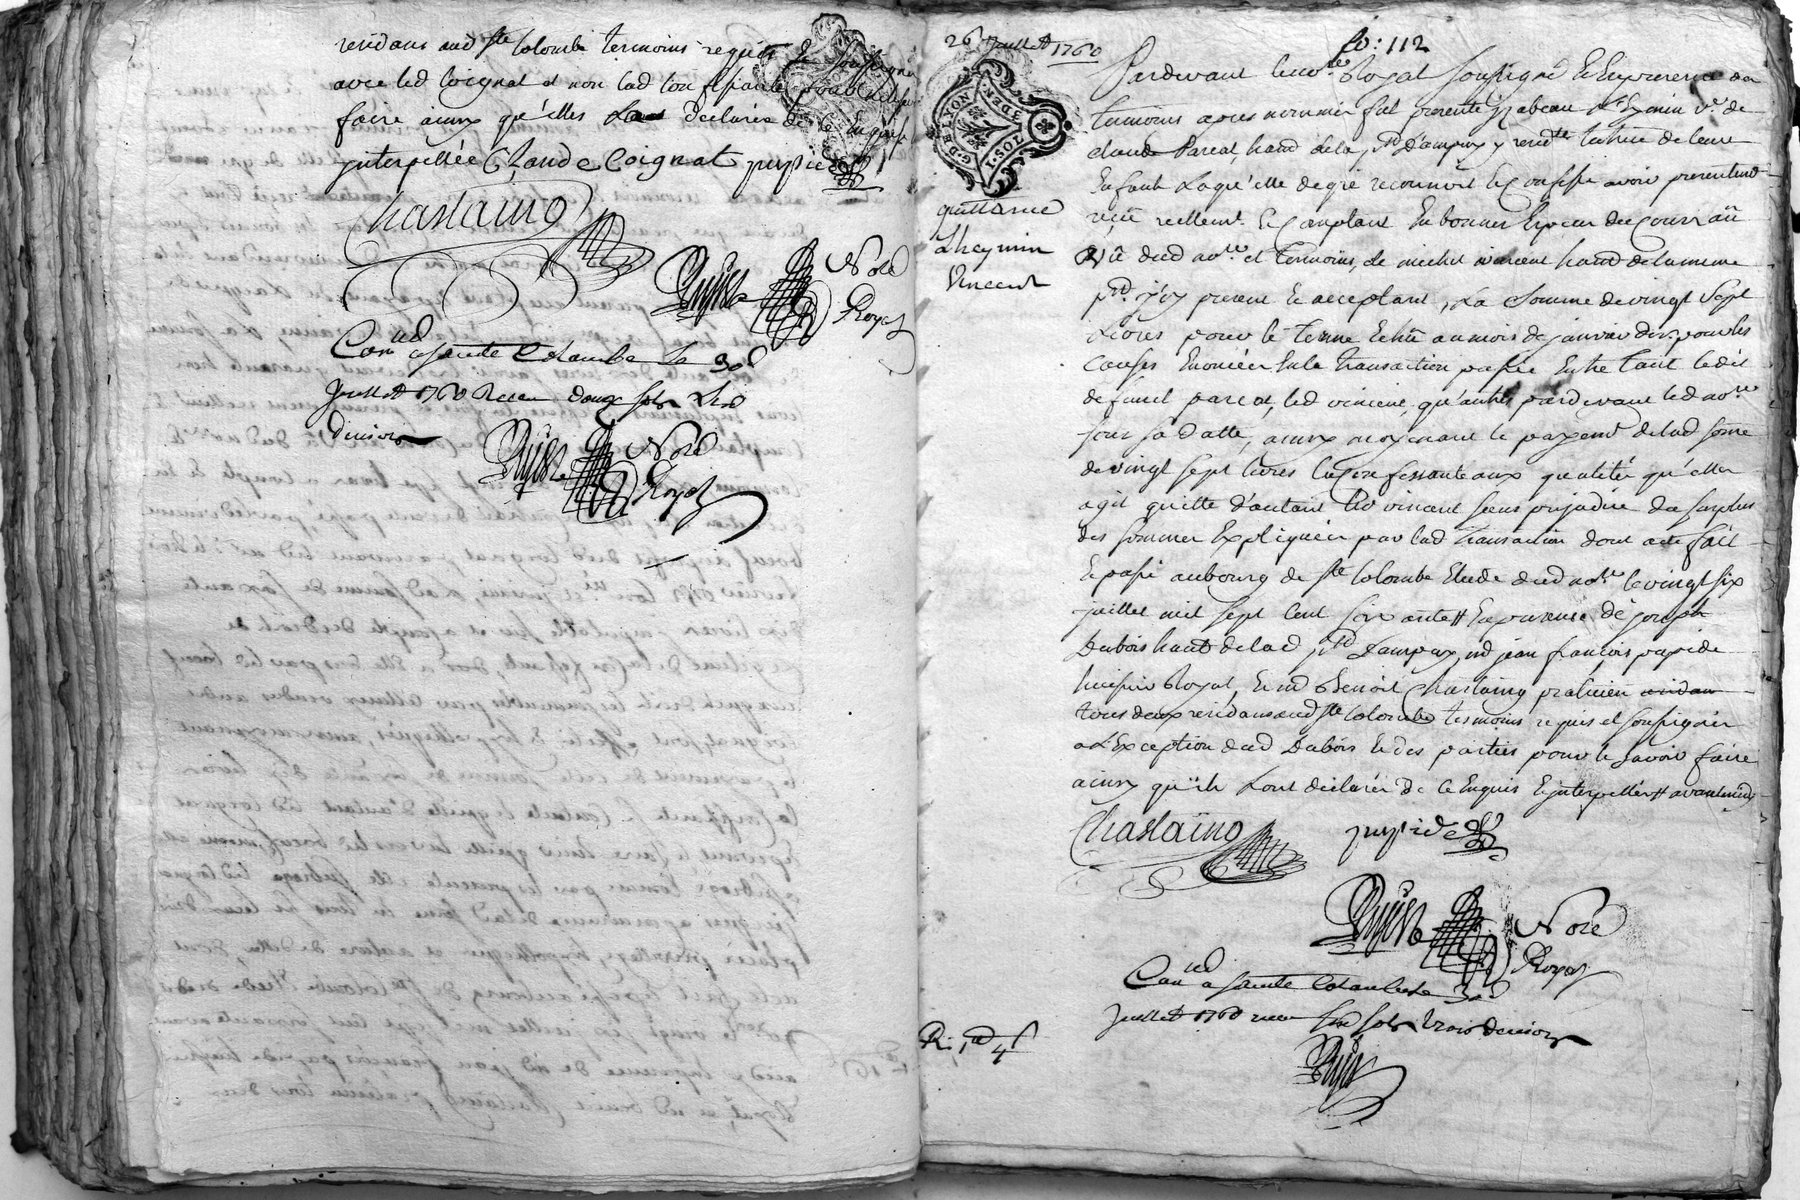 residans aud Ste Colombe temoins requis et soussignés
avec led Coignat et non lad Confessante pour ne le savoir
faire ainsy qu'elles declaré de ce Enquise
jnterpellée Claude Coignat pupide
Chastaing
Not.re
Royal
Con.llé a Sainte Colombe le 30.e
Juillet 1760 Recu douze sols
deniers
Not.re
Royal
26 Juillet 1760
fo: 112
G. DE LYON
DEN.
1. SOL
quittance
Lheymin
Vincent
Pardevant le no.re Royal soussigné Et En presence des
temoins apres nommés fut presente Izabeau Lheymin v.e de
claude Pareat, hand de la p.sse d'ampuy y resid.te tutrice de leurs
Enfants Laqu'elle de gré reconnoit Et Confesse avoir presentem.t
reçû reellem.t Et Comptant En bonnes Especes du Cours au
vû dud no.re et temoins, de michel vincent hand de la meme
p.sse jcy present Et acceptant, La Somme de vingt Sept
Livres pour le terme Echû au mois de janvier der pour les
causes Enoncées En la transaction passée Entre tant ledit
defunct pareat, led vincent, qu'autres pardevant led no.re
sous sa datte, ainsy moyenant le payem.t de lad some
de vingt sept livres la Confessante aux qualités qu'elle
agit quitte d'autant led vincent sans prejudice du surplus
des sommes Expliquées par lad transaction dont acte fait
Et passé au bourg de Ste Colombe Etude dud no.re le vingt six
juillet mil sept Cent soixante # En presence de joseph
Dubois hand de lad p.sse d'ampuy, md jean françois pupide
huissier Royal, Et md Benoit Chastaing praticien
tous deux residans aud Ste Colombe temoins requis et soussignés
a L'Exception dud Dubois Et des parties pour le savoir faire
ainsy qu'ils Lont declarés de ce Enquis Et jnterpellés # avant midy
Chastaing
pupide
Not.re
Royal
Con.llé a Sainte Colombe le 30.e
Juillet 1760 recu six sols trois deniers